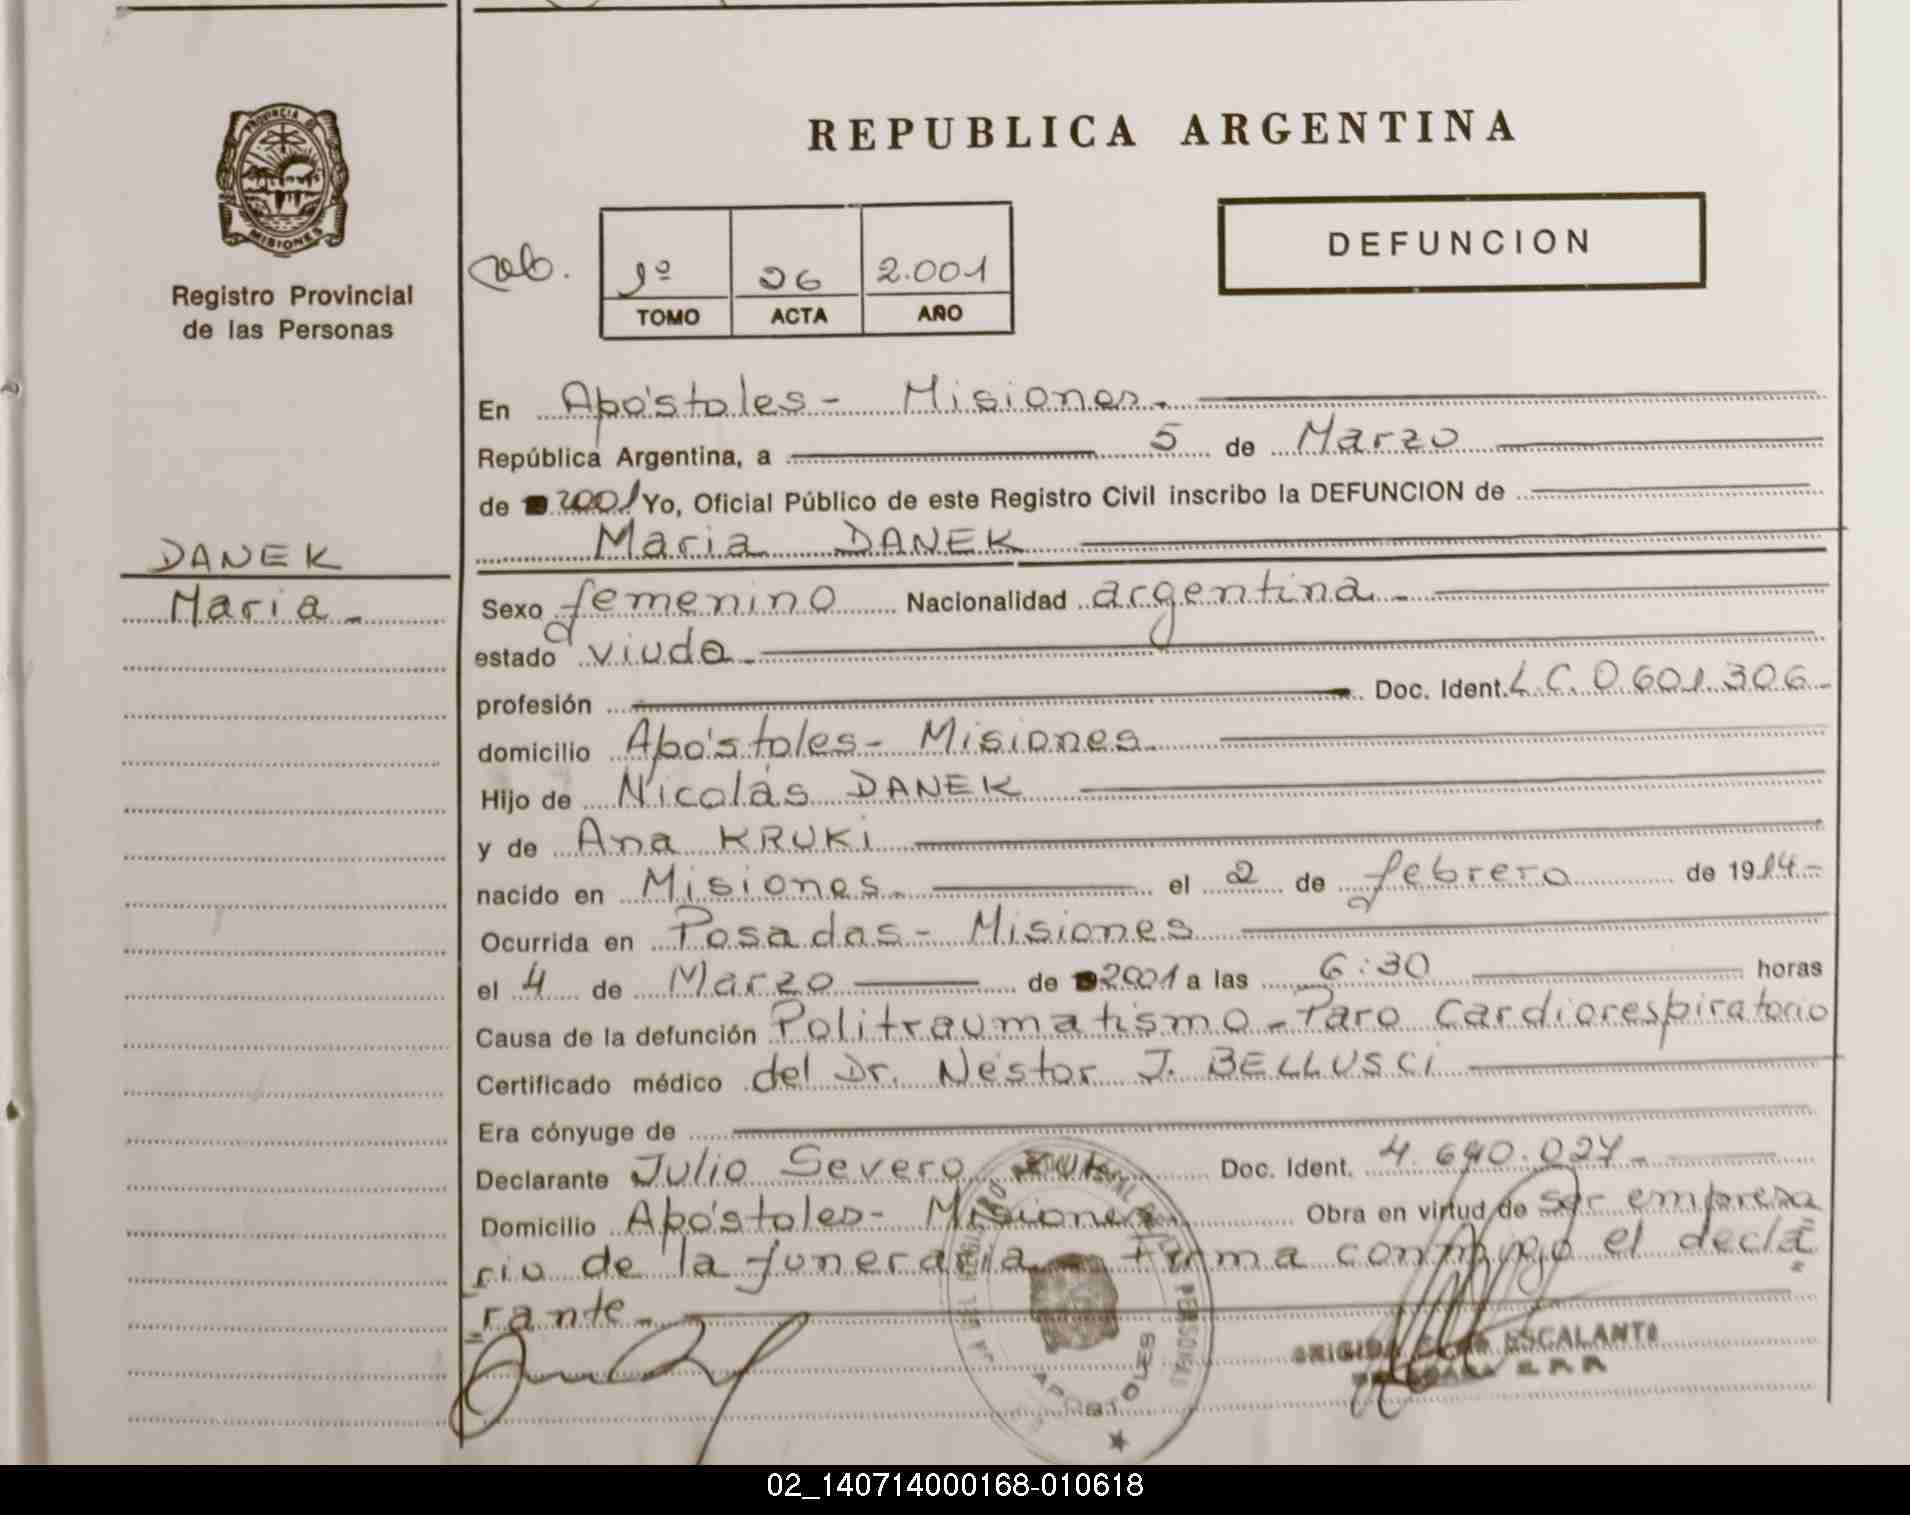 REPUBLICA ARGENTINA
PROVINCIA DE
MISIONES
Registro Provincial
de las Personas
1º 26 2.001
TOMO ACTA AÑO
DEFUNCION
En Apóstoles - Misiones.
República Argentina, a 5 de Marzo
de 2001 Yo, Oficial Público de este Registro Civil inscribo la DEFUNCION de
Maria DANEK
DANEK
Maria -
Sexo femenino Nacionalidad argentina. -
estado viuda -
profesión Doc. Ident. L.C. 0.601.306 -
domicilio Apóstoles - Misiones.
Hijo de Nicolás DANEK
y de Ana KRUKi
nacido en Misiones. - el 2 de febrero de 1914 -
Ocurrida en Posadas - Misiones
el 4 de Marzo de 2001 a las 6:30 horas
Causa de la defunción Politraumatismo - Paro Cardiorespiratorio
Certificado médico del Dr. Néstor J. BELLUSCi
Era cónyuge de
Declarante Julio Severo Doc. Ident. 4.640.027 -
Domicilio Apóstoles - Misiones Obra en virtud de ser empresa
rio de la funeraria - firma conmigo el decla
rante. -
APOSTOLES
ESCALANTE
02_140714000168-010618